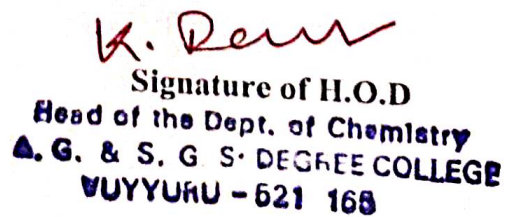 K.
Signature of H.O.D
Head of the Dept. of Chemistry
A. G. & S. G. S. DEGREE COLLEGE
VUYYURU - 521 165